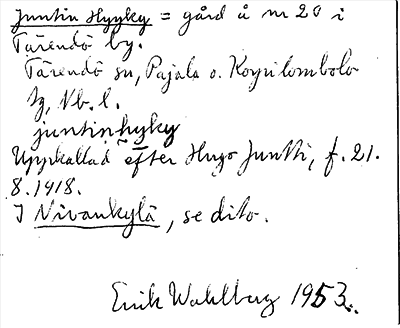 Juntin Hyyky = gård å nr 20 i
Tärendö by.
Tärendö sn, Pajala o. Korpilombolo
tg, Nb. l.
juntinhyky
Uppkallad efter Hugo Juntti, f. 21.
8.1918.
I Nivankylä, se dito.
Erik Wahlberg 1953.